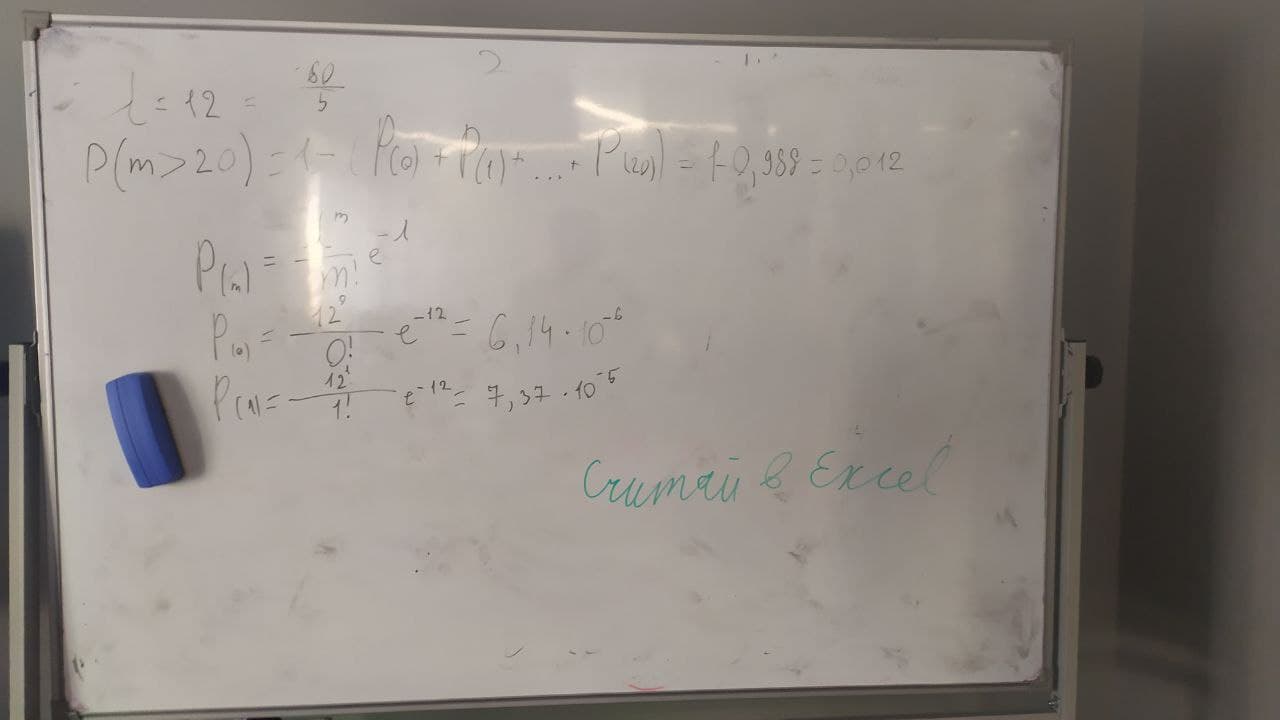 λ = 12 = 60/5
P(m>20) = 1 - (P(0) + P(1) + ... + P(20)) = 1-0,988 = 0,012
P(m) = λ^m/m! e^-λ
P(0) = 12^0/0! e^-12 = 6,14 · 10^-6
P(1) = 12^1/1! e^-12 = 7,37 · 10^-5
Считай в Excel